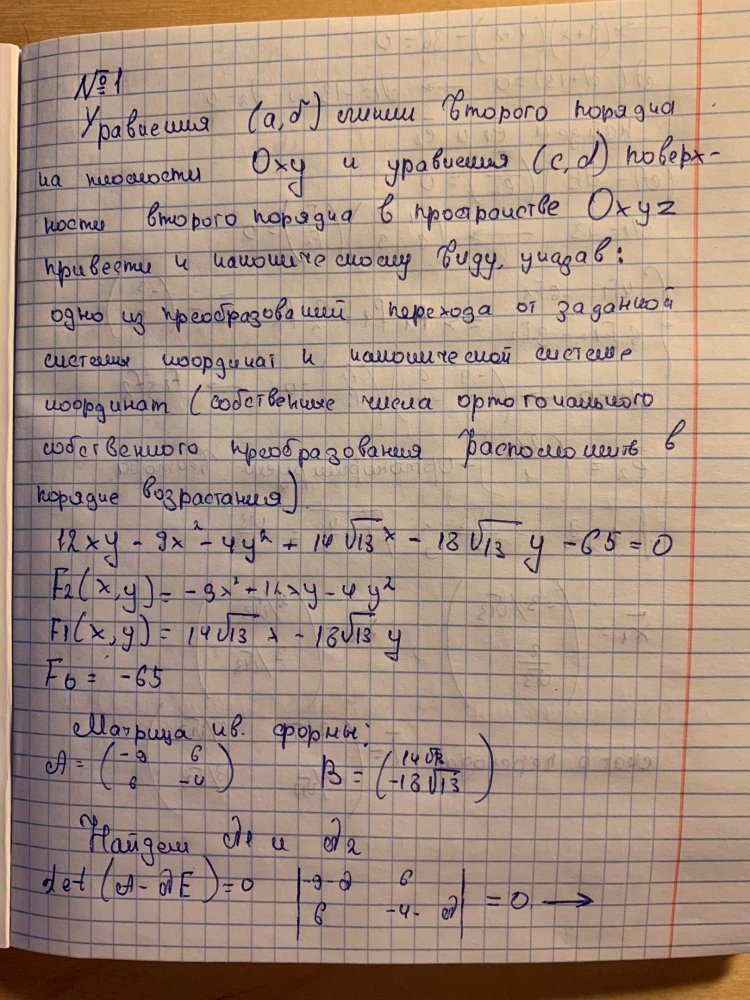 №1
Уравнения (а, б) линии второго порядка
на плоскости Oxy и уравнения (c, d) поверх-
ности второго порядка в пространстве Oxyz
привести к каноническому виду, указав:
одно из преобразований перехода от заданной
системы координат к канонической системе
координат (собственные числа ортогонального
собственного преобразования расположить в
порядке возрастания)
12xy - 9x² - 4y² + 14√13 x - 18√13 y - 65 = 0
F2(x,y) = -9x² + 12xy - 4y²
F1(x,y) = 14√13 x - 18√13 y
F0 = -65
Матрица кв. формы:
A = (-9 6 B = (14√13
6 -4) -18√13)
Найдем λ1 и λ2
det(A-λE)=0 |-9-λ 6
6 -4-λ| = 0 →